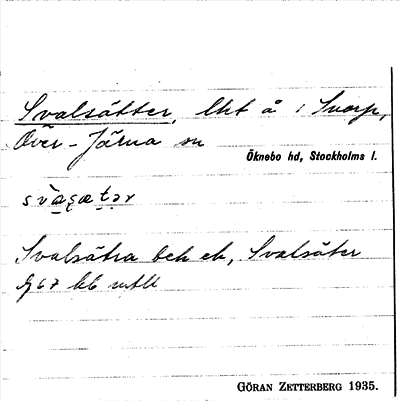 Svalsätter, lht å 1 Svarp,
Över-Järna sn
Öknebo hd, Stockholms l.
Svalsätra beh ek, Svalsäter
G 67 bl.
GÖRAN ZETTERBERG 1935.